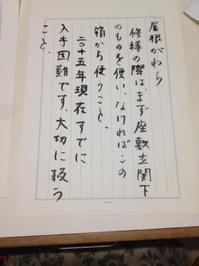 屋根がわら
修繕の際は、まず座敷玄関下
のものを使い、なければこの
箱から使うこと。
二〇十五年現在すでに
入手困難です。大切に扱う
こと。